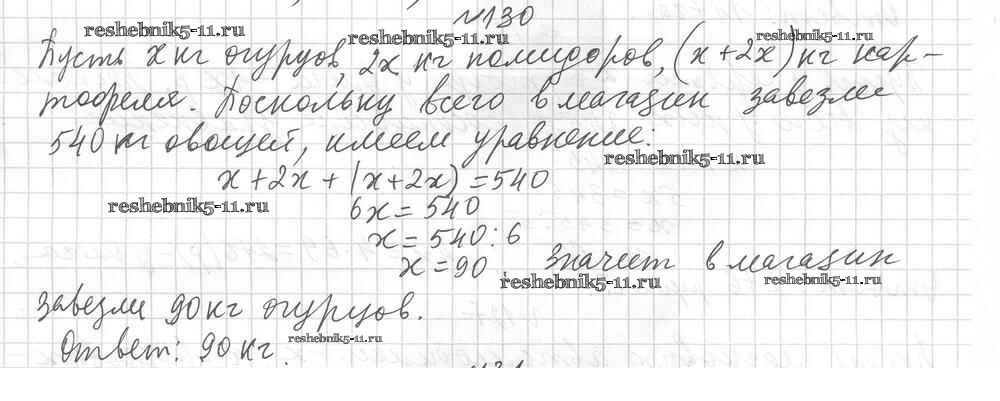 №130
reshebnik5-11.ru reshebnik5-11.ru reshebnik5-11.ru
Пусть x кг огурцов, 2x кг помидоров, (x+2x) кг кар-
тофеля. Поскольку всего в магазин завезли
540 кг овощей, имеем уравнение:
reshebnik5-11.ru
x+2x+(x+2x)=540
reshebnik5-11.ru
6x=540
x=540:6
x=90. Значит в магазин
reshebnik5-11.ru reshebnik5-11.ru
завезли 90 кг огурцов.
reshebnik5-11.ru
Ответ: 90 кг.